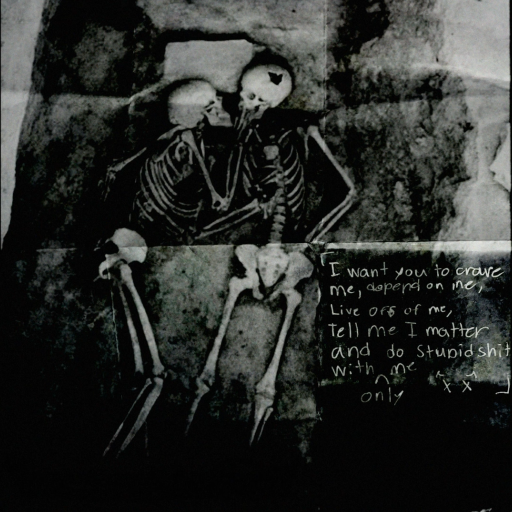 I want you to crave
me, depend on me,
Live off of me,
Tell me I matter
and do stupid shit
with me
only
x x